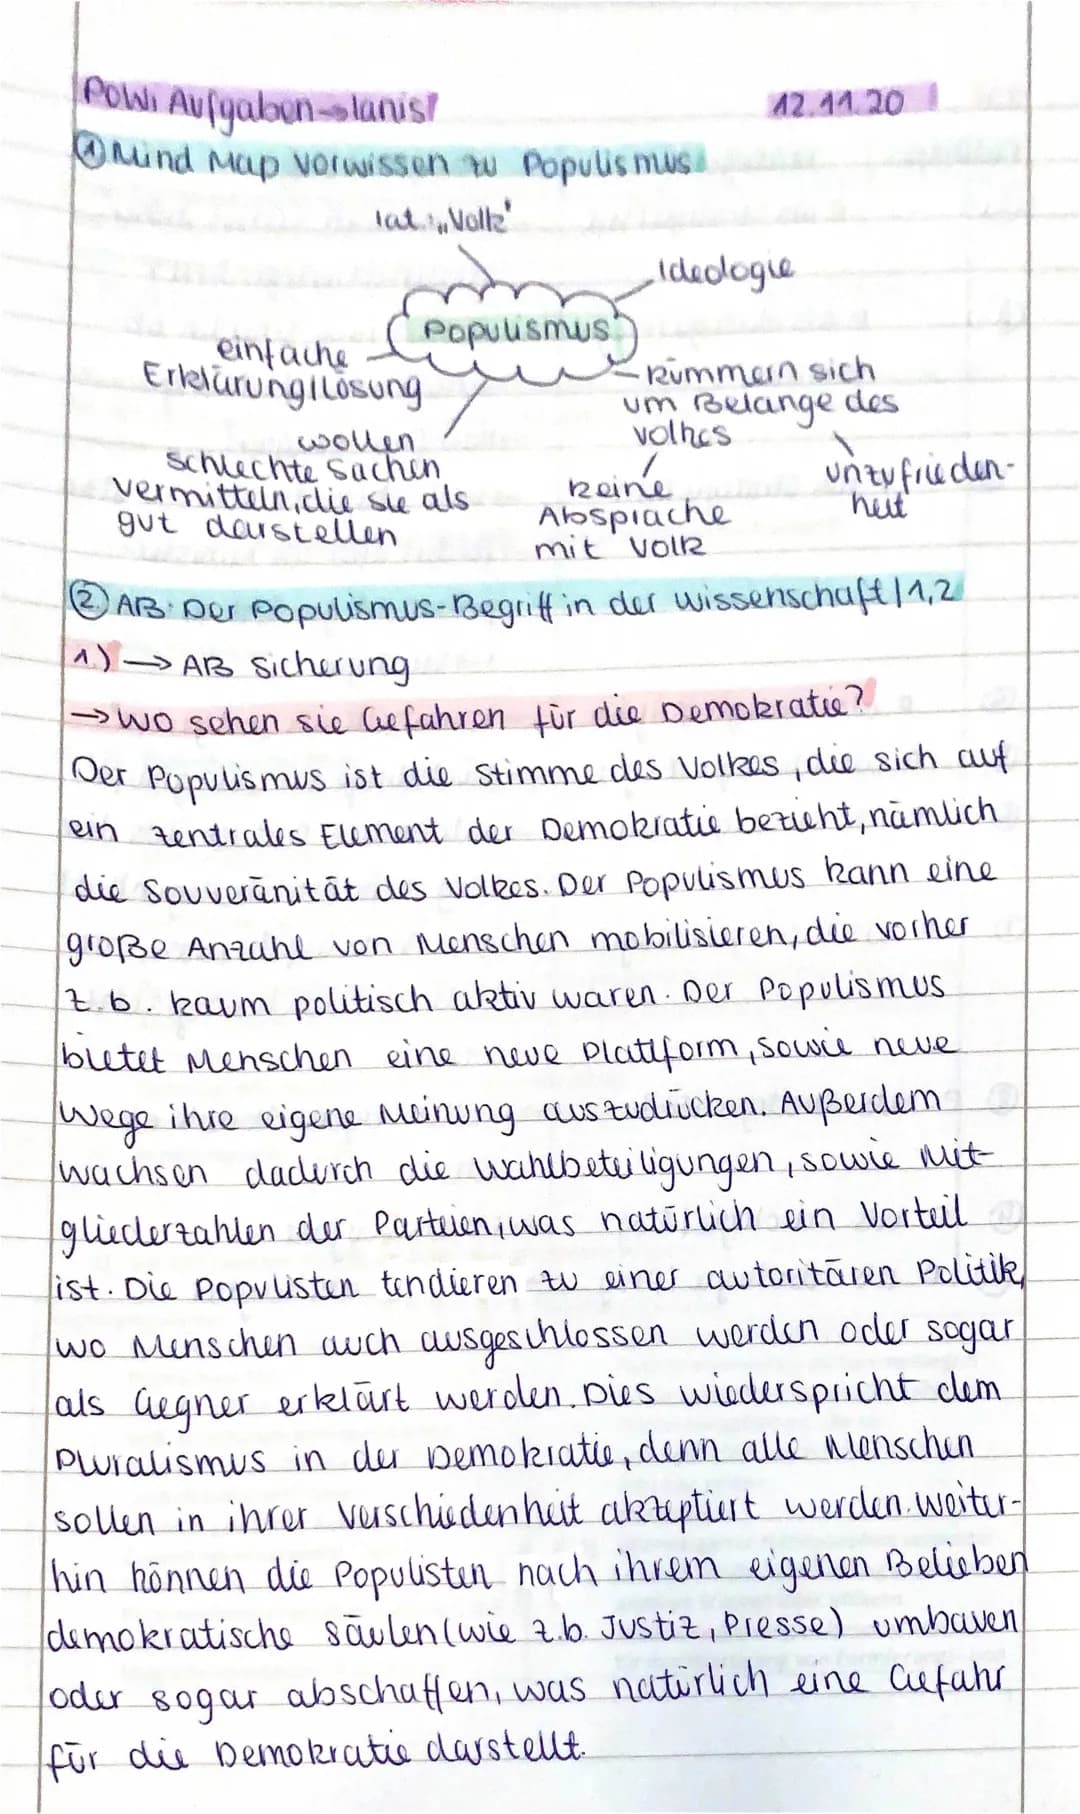 PoWi Aufgaben → lanis 12.11.20
① Mind Map Vorwissen zu Populismus
lat.: „Volk"
Ideologie
Populismus
einfache
Erklärung/Lösung
kümmern sich
um Belange des
Volkes
wollen
schlechte Sachen
vermitteln, die sie als
gut darstellen
keine
Absprache
mit Volk
unzufrieden-
heit
② AB: Der Populismus-Begriff in der Wissenschaft/1,2
1.) → AB Sicherung
→ Wo sehen sie Gefahren für die Demokratie?
Der Populismus ist die Stimme des Volkes, die sich auf
ein zentrales Element der Demokratie bezieht, nämlich
die Souveränität des Volkes. Der Populismus kann eine
große Anzahl von Menschen mobilisieren, die vorher
z.b. kaum politisch aktiv waren. Der Populismus
bietet Menschen eine neue Plattform, sowie neue
Wege ihre eigene Meinung auszudrücken. Außerdem
wachsen dadurch die Wahlbeteiligungen, sowie Mit-
gliederzahlen der Parteien, was natürlich ein Vorteil
ist. Die Populisten tendieren zu einer autoritären Politik,
wo Menschen auch ausgeschlossen werden oder sogar
als Gegner erklärt werden. Dies wiederspricht dem
Pluralismus in der Demokratie, denn alle Menschen
sollen in ihrer Verschiedenheit akzeptiert werden. Weiter-
hin können die Populisten nach ihrem eigenen Belieben
demokratische säulen (wie z.b. Justiz, Presse) umbauen
oder sogar abschaffen, was natürlich eine Gefahr
für die Demokratie darstellt.